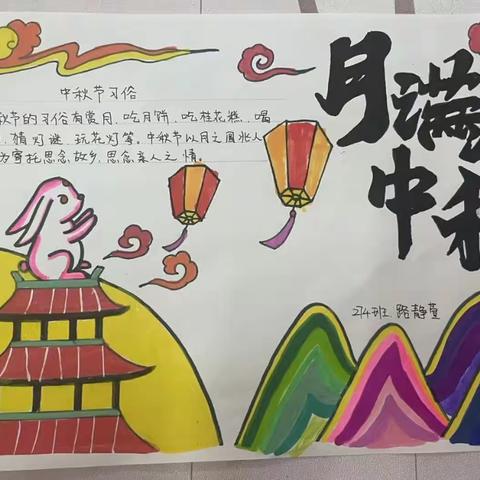 中秋节习俗
秋节的习俗有赏月、吃月饼、吃桂花糕、喝
、猜灯谜、玩花灯等。中秋节以月之圆兆人
方寄托思念故乡,思念亲人之情。
月满
中秋
214班 路静萱